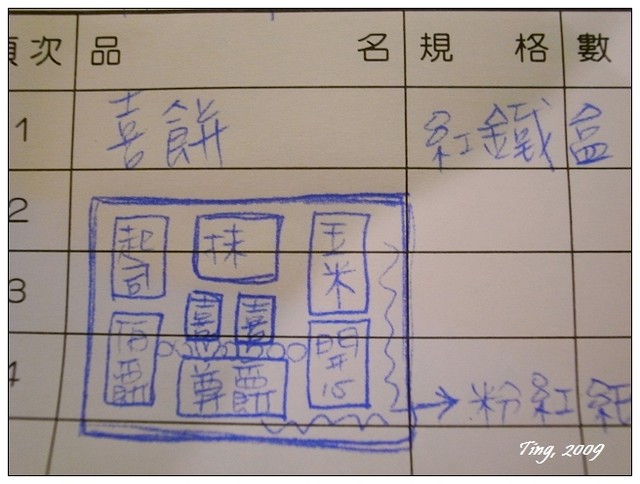 項次 品 名 規 格 數
1 喜餅 紅鐵盒
2
3
4
起司 抹 玉米
囍 囍
方餅 尊爵 開心
粉紅紙
Ting, 2009